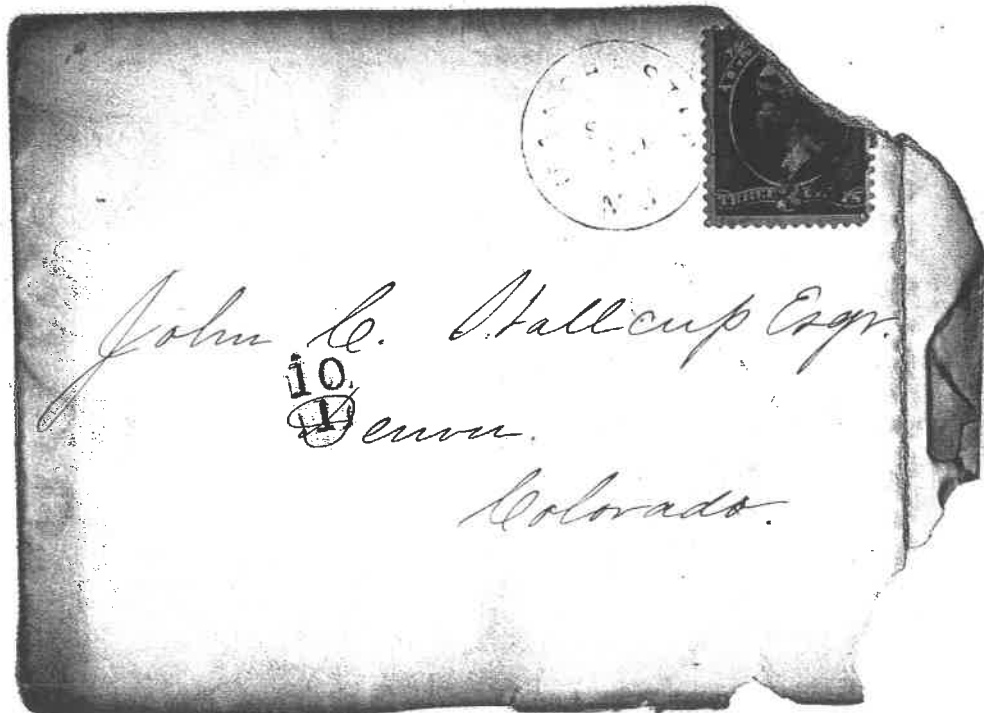 N.J.
THREE
John C. Stallcup Esqr.
10.
1
Denver.
Colorado.